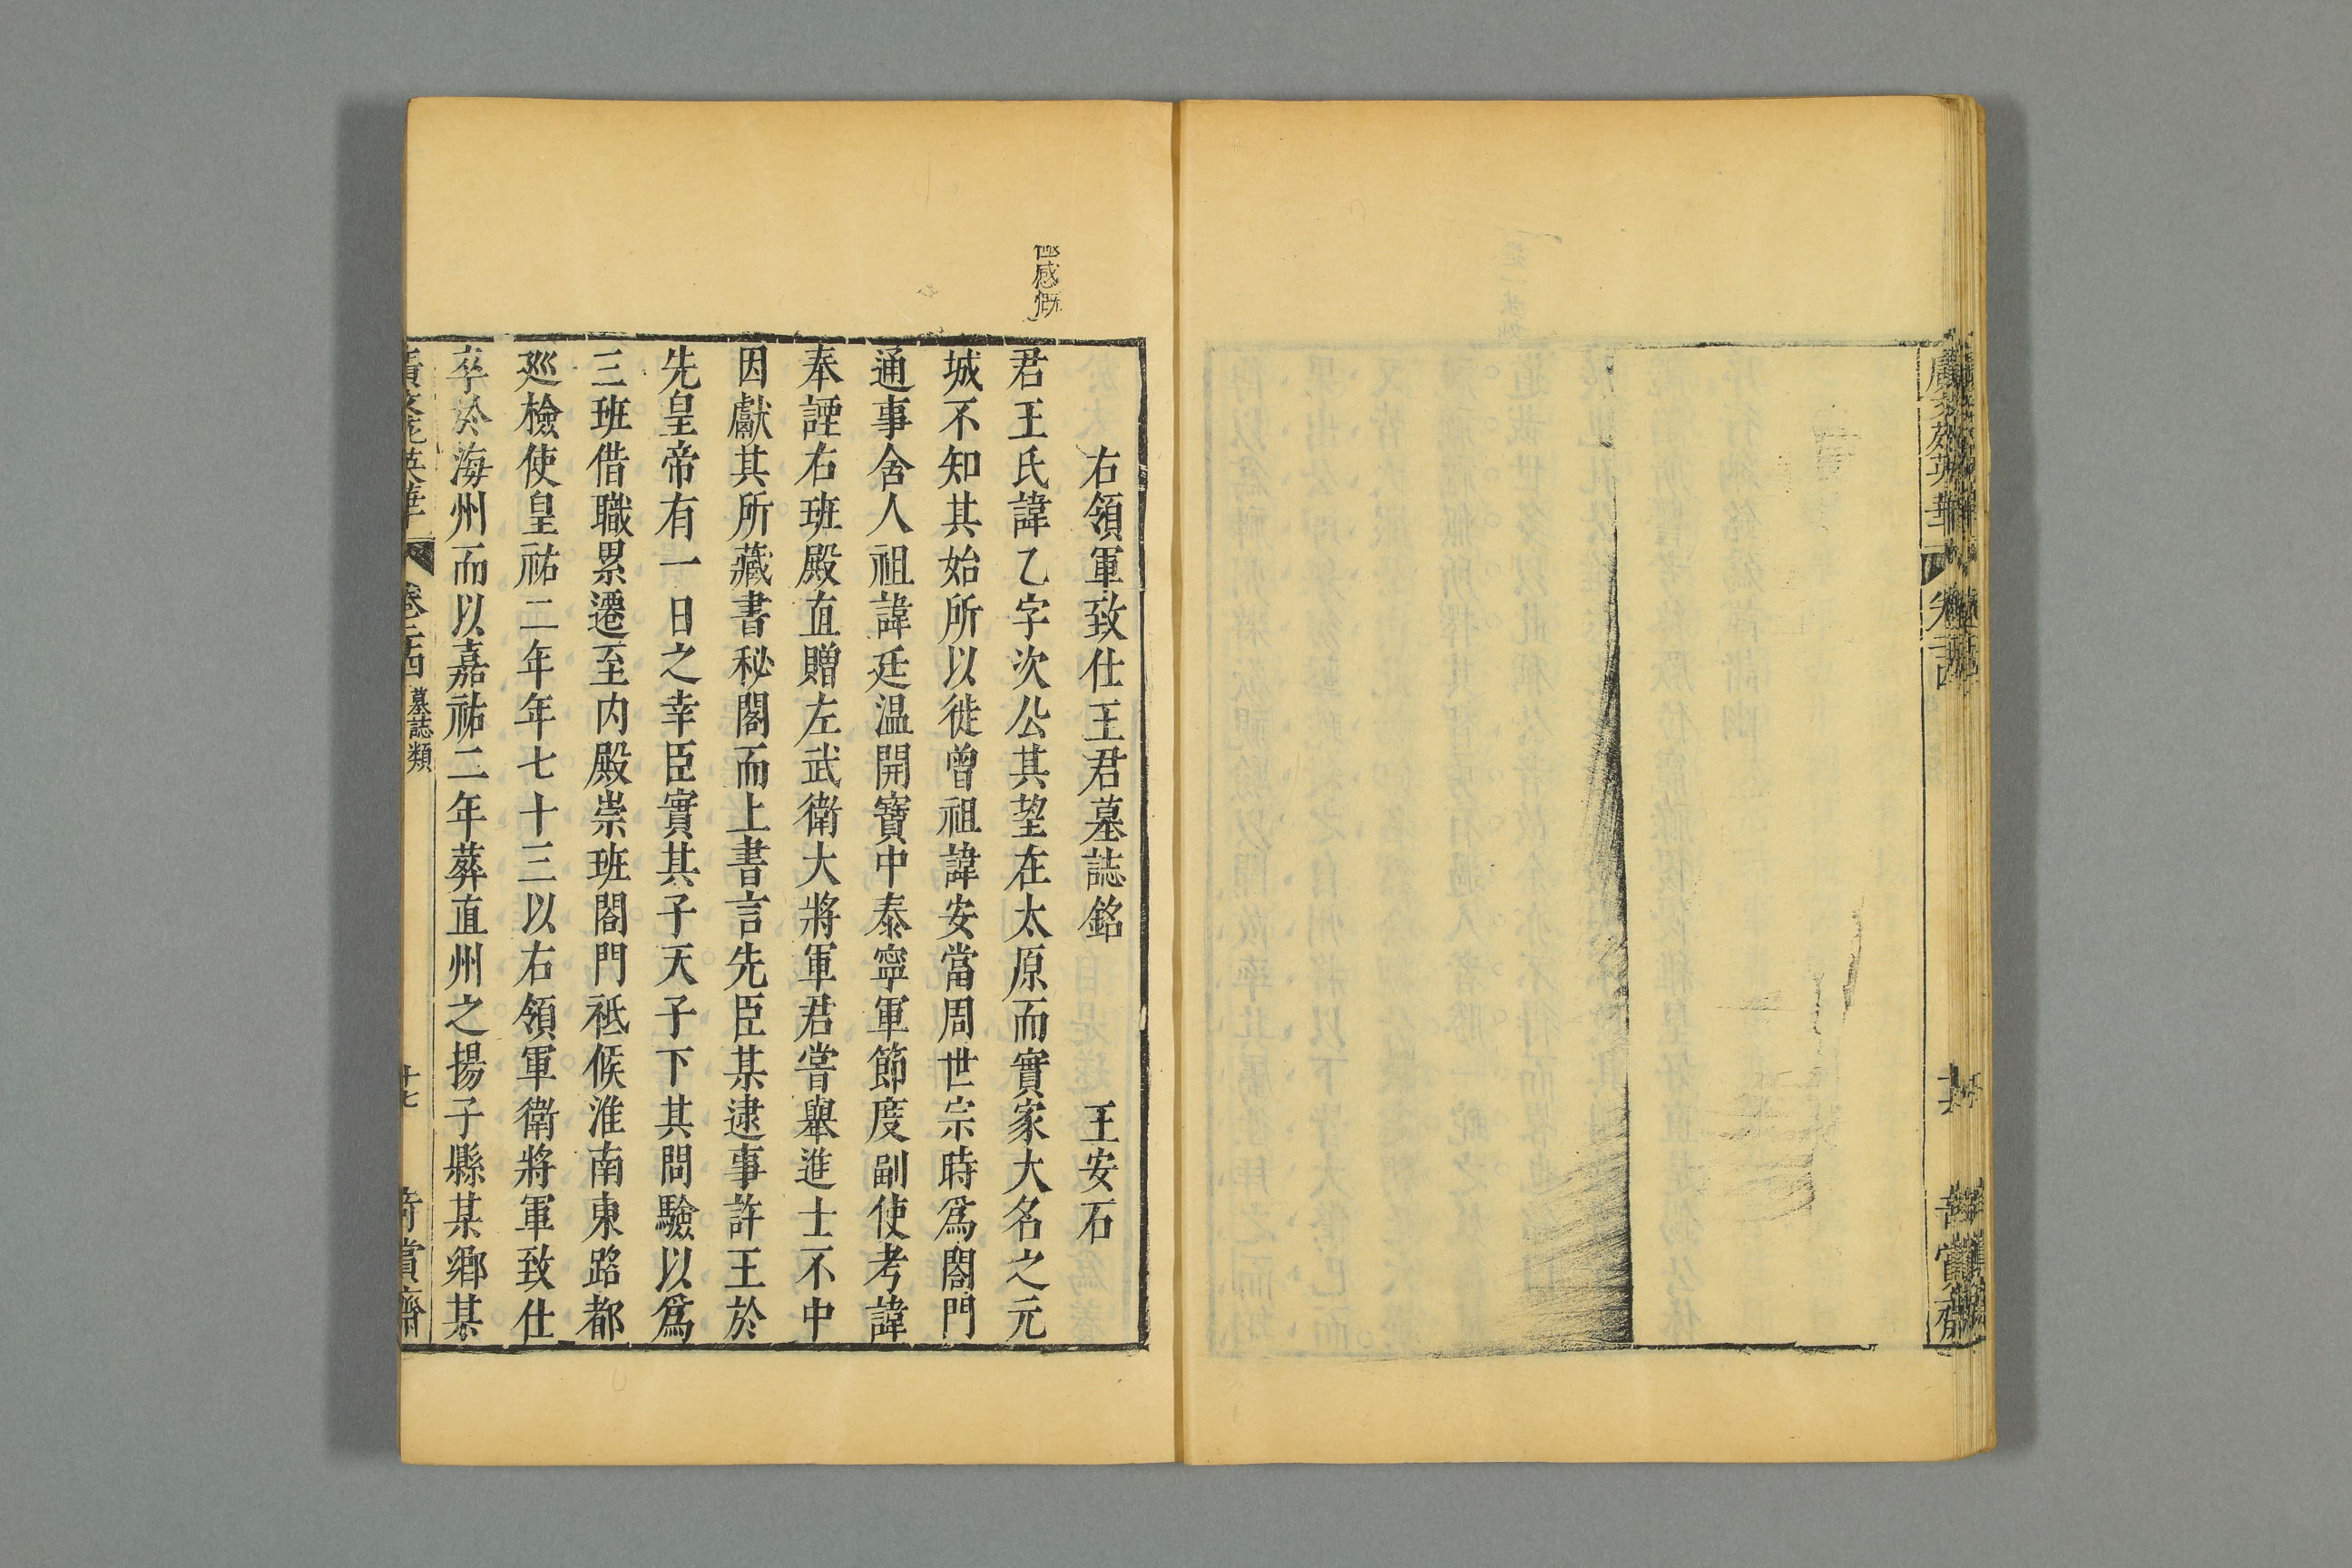 廣文苑英華 卷二十四 十六 奇賞齋
極感慨
右領軍致仕王君墓誌銘 王安石
君王氏諱乙字次公其望在太原而實家大名之元
城不知其始所以徙曾祖諱安當周世宗時爲閤門
通事舍人祖諱廷温開寶中泰寧軍節度副使考諱
奉諲右班殿直贈左武衛大將軍君嘗舉進士不中
因獻其所藏書秘閣而上書言先臣某逮事許王於
先皇帝有一日之幸臣實其子天子下其問驗以爲
三班借職累遷至内殿崇班閤門祗候淮南東路都
廵檢使皇祐二年年七十三以右領軍衛將軍致仕
卒於海州而以嘉祐二年葬直州之揚子縣某鄉某
廣文苑英華 卷二十四 墓誌類 十七 奇賞齋